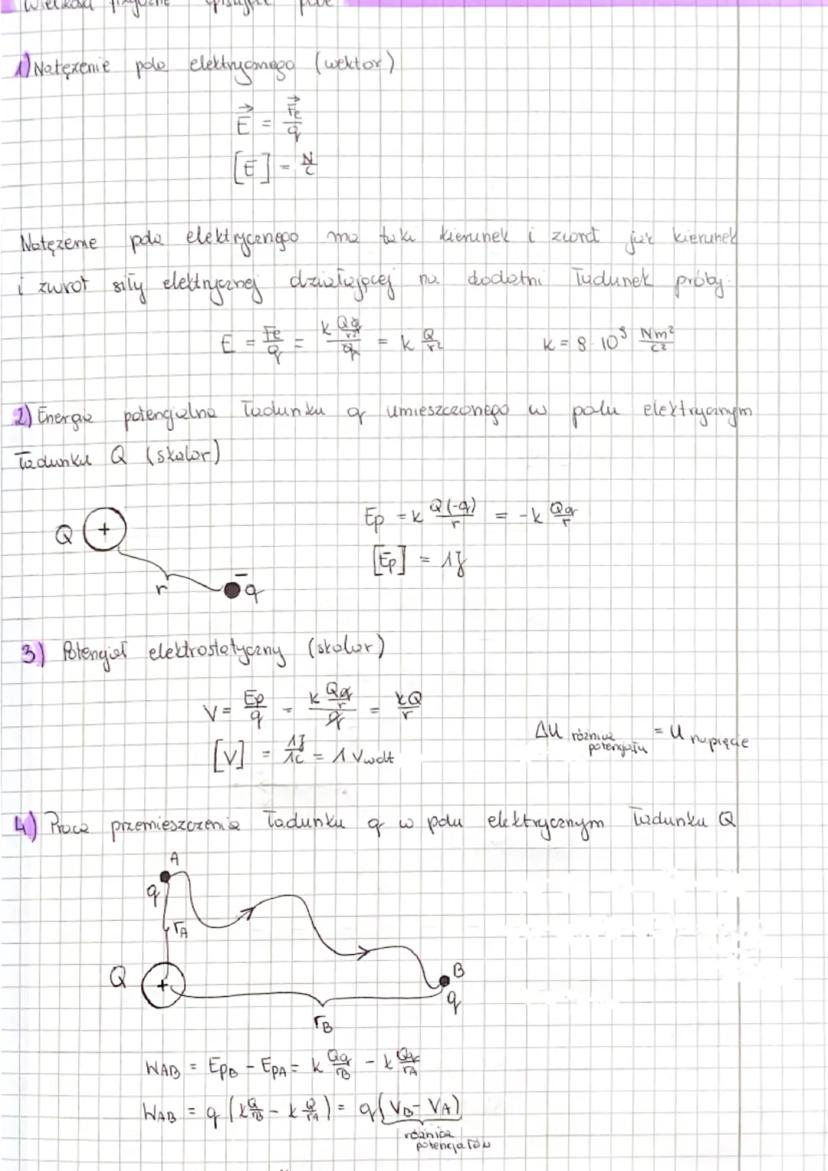 Wielkości fizyczne opisujące pole
1) Natężenie pola elektrycznego (wektor)
E⃗ = F⃗e/q
[E] = N/C
Natężenie pola elektrycznego ma taki kierunek i zwrot jak kierunek
i zwrot siły elektrycznej działającej na dodatni ładunek próby.
E = Fe/q = (k Qq/r²)/q = k Q/r²    k = 8·10⁹ Nm²/C²
2) Energia potencjalna ładunku q umieszczonego w polu elektrycznym
ładunku Q (skalar)
Q + r - q
Ep = k Q(-q)/r = -k Qq/r
[Ep] = 1J
3) Potencjał elektrostatyczny (skalar)
V = Ep/q = (k Qq/r)/q = kQ/r
[V] = 1J/1C = 1 Vwolt
ΔU różnica potencjału = U napięcie
4) Praca przemieszczenia ładunku q w polu elektrycznym ładunku Q
A
q
rA
Q + B
q
rB
WAB = EpB - EpA = k Qq/rB - k Qq/rA
WAB = q (k Q/rB - k Q/rA) = q(VB - VA)
różnica
potencjałów